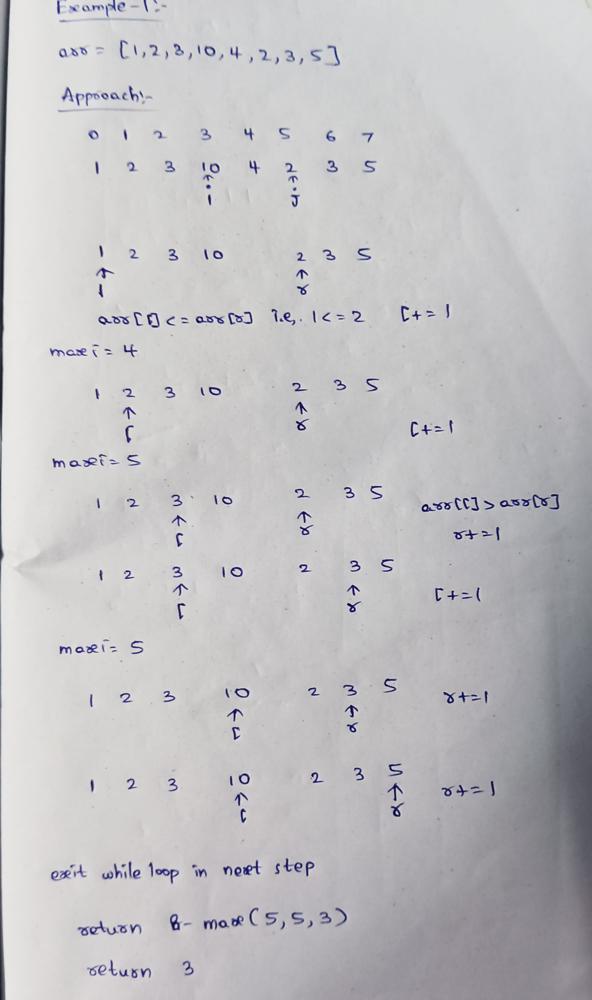 Example-1:-
arr = [1,2,3,10,4,2,3,5]
Approach:-
0 1 2 3 4 5 6 7
1 2 3 10 4 2 3 5
↑ ↑
i j
1 2 3 10 2 3 5
↑ ↑
l r
arr[l] <= arr[r] i.e., 1<=2 l+=1
maxi = 4
1 2 3 10 2 3 5
↑ ↑
l r l+=1
maxi = 5
1 2 3 10 2 3 5 arr[l] > arr[r]
↑ ↑
l r r+=1
1 2 3 10 2 3 5
↑ ↑
l r l+=1
maxi = 5
1 2 3 10 2 3 5 r+=1
↑ ↑
l r
1 2 3 10 2 3 5 r+=1
↑ ↑
l r
exit while loop in next step
return 8- max(5,5,3)
return 3